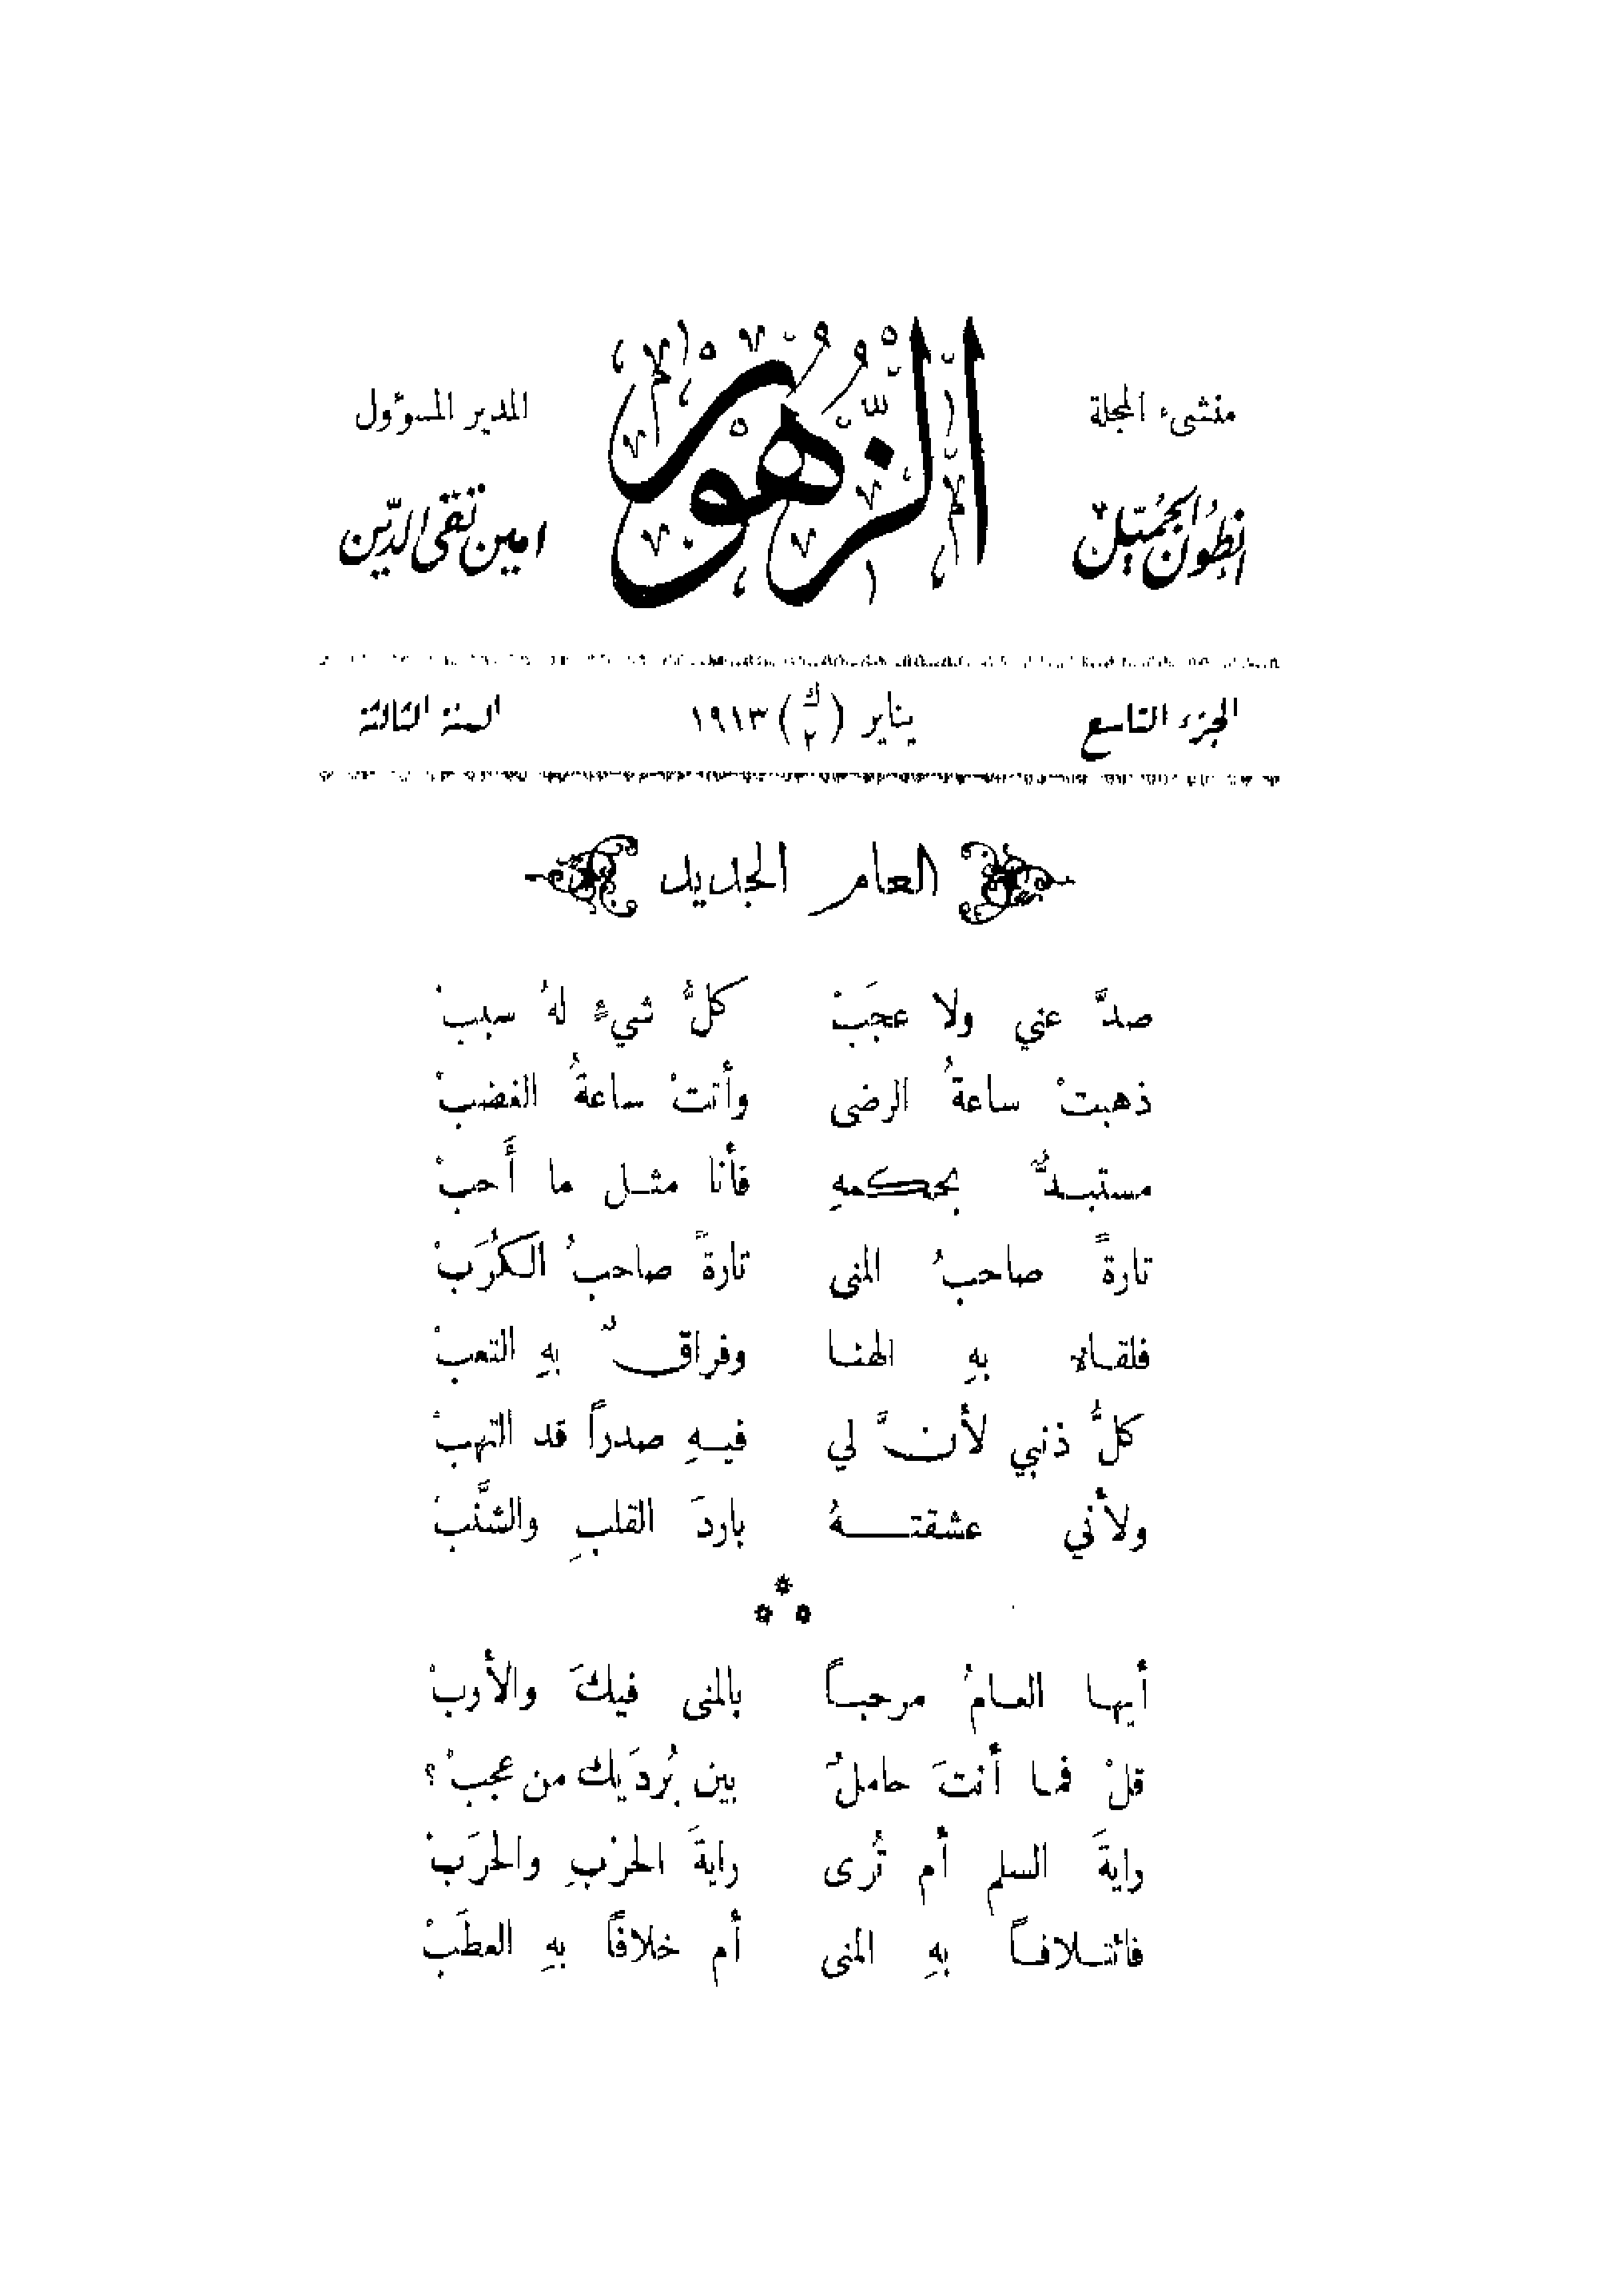 منشىء المجلة
الزُّهُور
المدير المسؤول
انطُون الجُميّل
امين تقى الدّين
الجزء التاسع يناير (ك ٢) ١٩١٣ السنة الثالثة
العام الجديد
صدَّ عني ولا عجَبْ كلُّ شيءٍ لهُ سببْ
ذهبتْ ساعةُ الرضى وأتتْ ساعةُ الغضبْ
مستبدٌّ بحكمهِ فأنا مثل ما أَحبْ
تارةً صاحبُ المنى تارةً صاحبُ الكُرَبْ
فلقاه بهِ الهنا وفراقٌ بهِ التعبْ
كلُّ ذنبي لأنَّ لي فيهِ صدراً قد التهبْ
ولأني عشقتهُ باردَ القلبِ والشنَّبْ
***
أيها العامُ مرحباً بالمنى فيكَ والأربْ
قلْ فما أنتَ حاملٌ بين بُردَيك من عجبْ؟
رايةَ السلم أم تُرى رايةَ الحرْبِ والحرَبْ
فائتلافاً بهِ المنى أم خلافاً بهِ العطَبْ